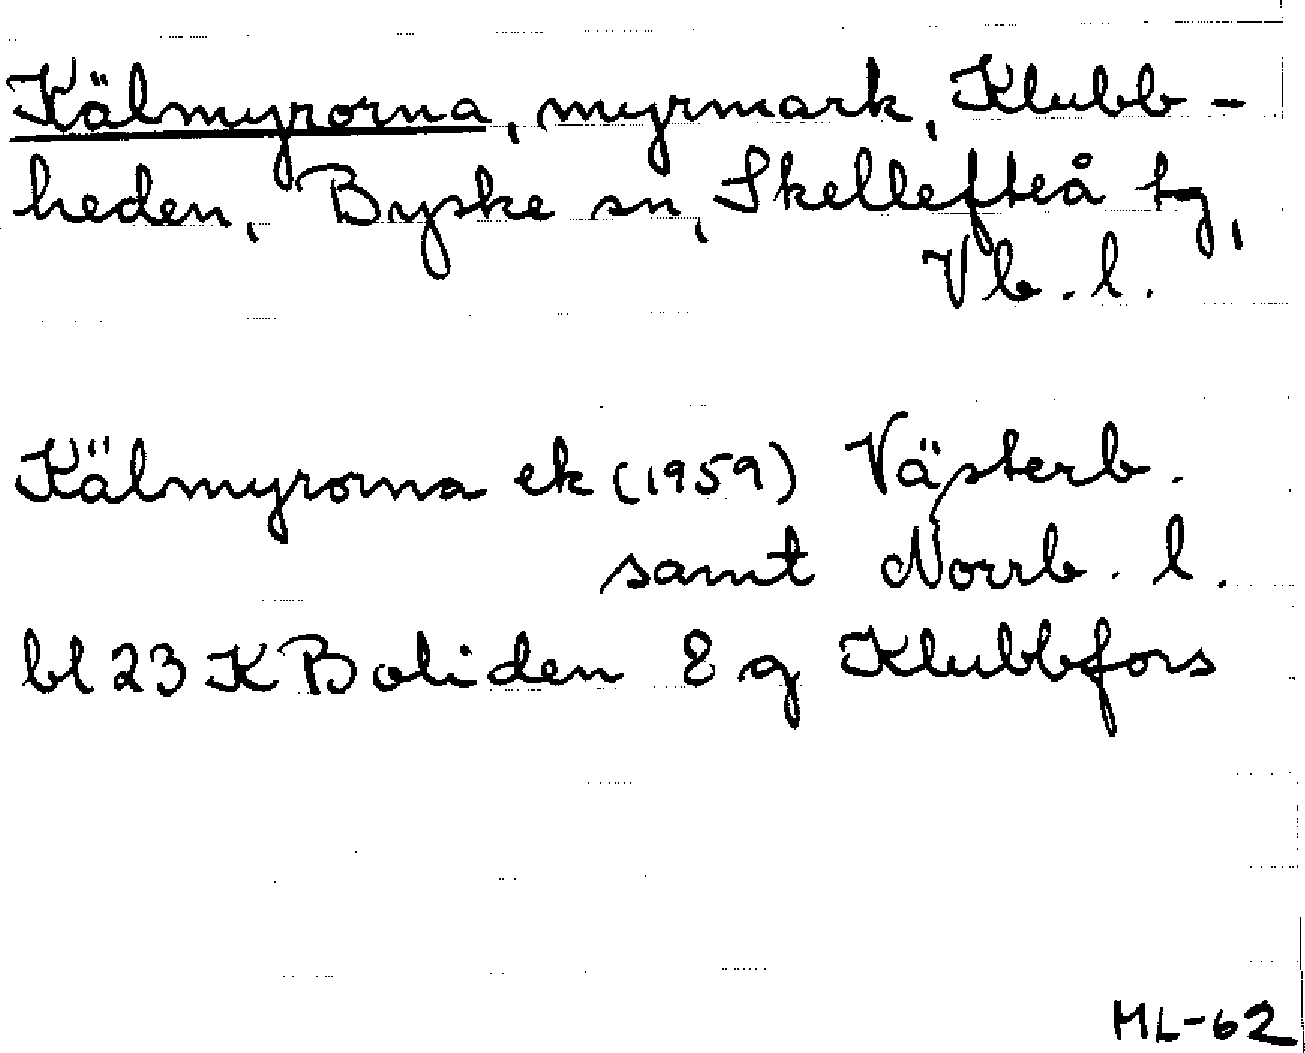 Kälmyrorna, myrmark, Klubb-
heden, Byske sn, Skellefteå tg,
Vb. l.
Kälmyrorna ek (1959) Västerb.
samt Norrb. l.
bl 23 K Boliden 8 g Klubbfors
ML-62